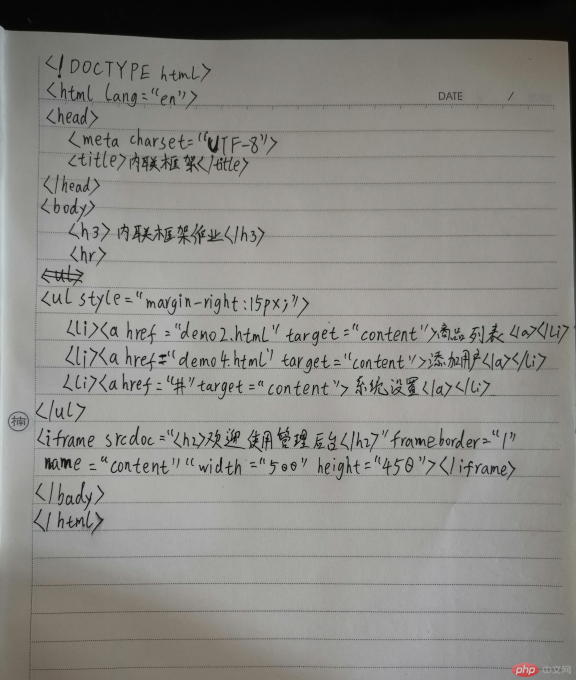 <!DOCTYPE html>
<html lang="en">
DATE /
<head>
<meta charset="UTF-8">
<title>内联框架</title>
</head>
<body>
<h3>内联框架作业</h3>
<hr>
<ul>
<ul style="margin-right:15px;">
<li><a href="demo2.html" target="content">商品列表</a></li>
<li><a href="demo4.html" target="content">添加用户</a></li>
<li><a href="#" target="content">系统设置</a></li>
</ul>
<iframe srcdoc="<h2>欢迎使用管理后台</h2>" frameborder="1"
name="content" "width="500" height="450"></iframe>
</body>
</html>
楠
php 中文网